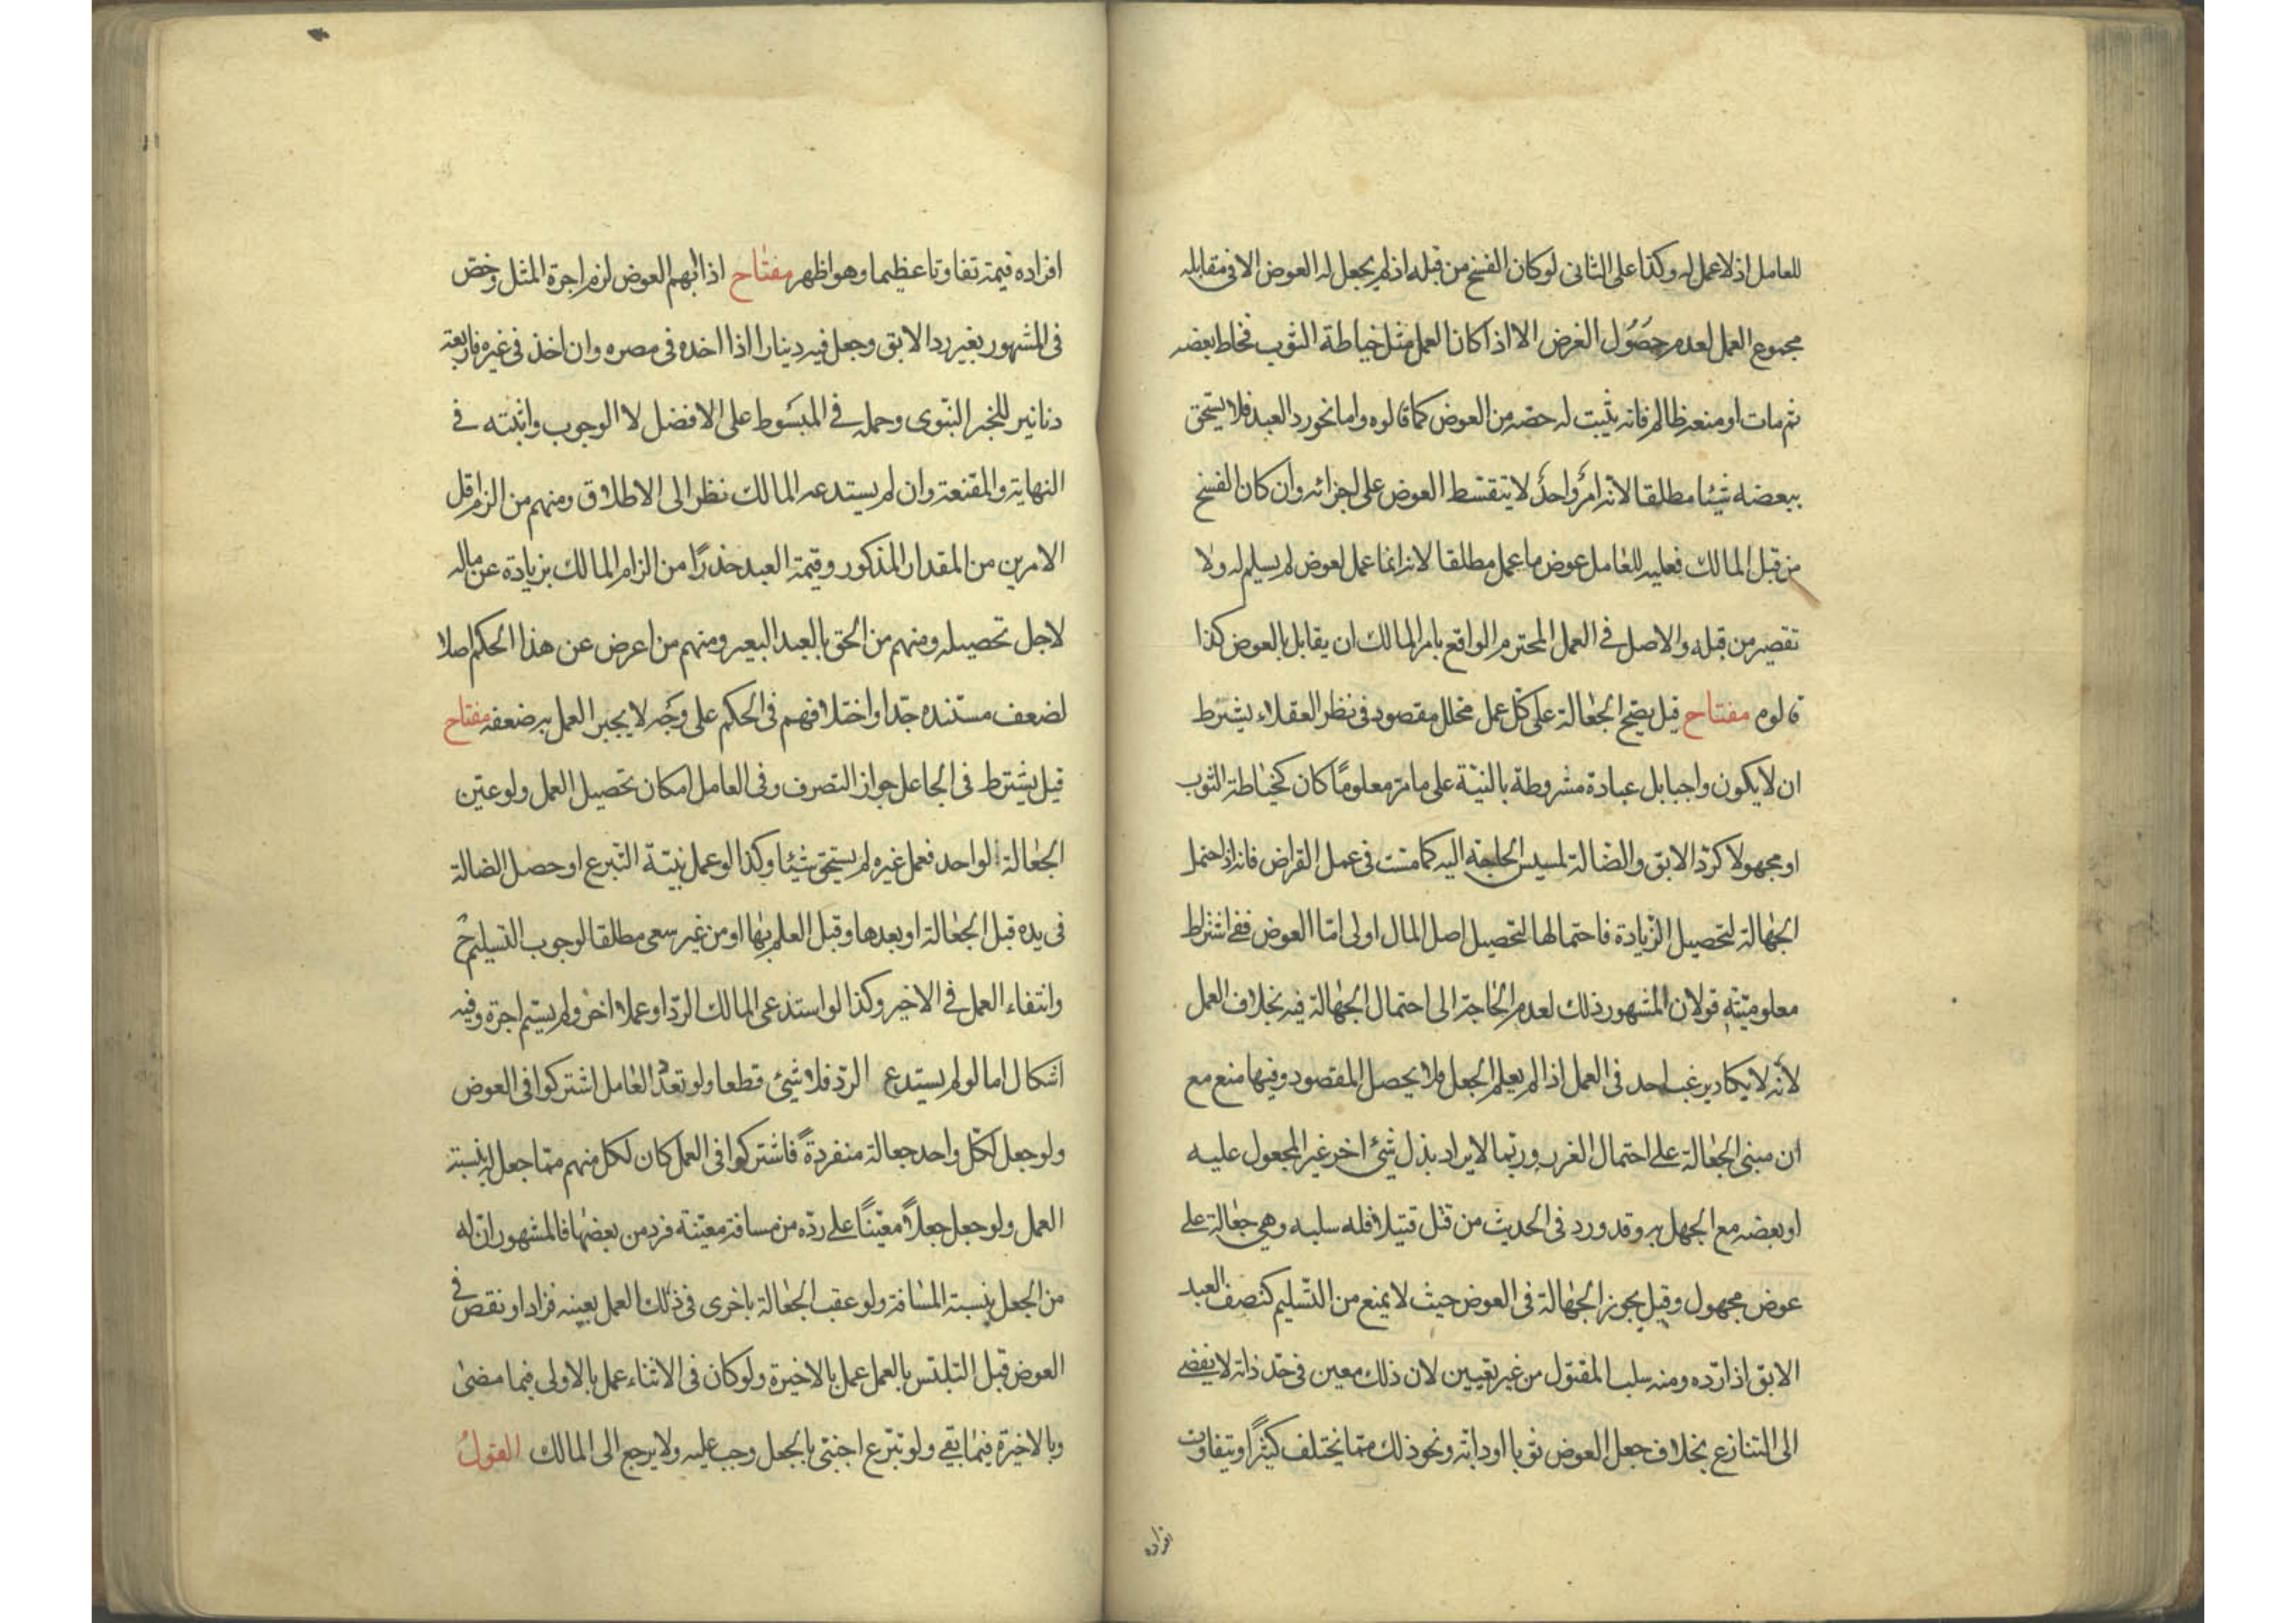 للعامل اذ لا عمل له وكذا على الثانى لو كان الفسخ من قبله اذ لم يجعل له العوض الا فى مقابله
مجموع العمل لعدم حصول الغرض الا اذا كان العمل مثل خياطة الثوب فخاط بعضه
ثم مات او منعه ظالم فانه يثبت له حصه من العوض كما قالوه واما نحو رد العبد فلا يستحق
ببعضه شيئا مطلقا لانه امر واحد لا يتقسط العوض على اجزائه وان كان الفسخ
من قبل المالك فعليه للعامل عوض ما عمل مطلقا لانه انما عمل لعوض لم يسلم له ولا
تقصير من قبله والاصل فى العمل المحترم الواقع بامر المالك ان يقابل بالعوض كذا
قالوه مفتاح قيل يصح الجعالة على كل عمل محلل مقصود فى نظر العقلاء يشترط
ان لا يكون واجبا بل عبادة مشروطة بالنية على ما مر معلوما كان كخياطة الثوب
او مجهولا كرد الابق والضالة لمسيس الحاجة اليه كما مست فى عمل القراض فانه اذا احتمل
الجهالة لتحصيل الزيادة فاحتمالها لتحصيل اصل المال اولى اما العوض ففى اشتراط
معلوميته قولان المشهور ذلك لعدم الحاجة الى احتمال الجهالة فيه بخلاف العمل
لانه لا يكاد يرغب احد فى العمل اذا لم يعلم الجعل فلا يحصل المقصود وفيها منع مع
ان مبنى الجعالة على احتمال الغرر وربما لا يراد بذل شئ اخر غير المجعول عليه
او بعضه مع الجهل به وقد ورد فى الحديث من قتل قتيلا فله سلبه وهي جعالة على
عوض مجهول وقيل يجوز الجهالة فى العوض حيث لا يمنع من التسليم كنصف العبد
الابق اذا رده ومنه سلب المقتول من غير تعيين لان ذلك معين فى حد ذاته لا يفضى
الى التنازع بخلاف جعل العوض ثوبا او دابة ونحو ذلك مما يختلف كثيرا ويتفاوت
افراده
افراده قيمة تفاوتا عظيما وهو اظهر مفتاح اذا ابهم العوض لزم اجرة المثل وخص
فى المشهور بغير رد الابق وجعل فيه دينارا اذا اخده فى مصره وان اخذ فى غيره فاربعة
دنانير للخبر النبوى وحمله فى المبسوط على الافضل لا الوجوب واثبته فى
النهاية والمقنعة وان لم يستدعه المالك نظرا الى الاطلاق ومنهم من الزم اقل
الامرين من المقدار المذكور وقيمة العبد حذرا من الزام المالك بزيادة عن ماله
لاجل تحصيله ومنهم من الحق بالعبد البعير ومنهم من اعرض عن هذا الحكم اصلا
لضعف مستنده جدا واختلافهم فى الحكم على وجه لا يجبر العمل به ضعفه مفتاح
قيل يشترط فى الجاعل جواز التصرف وفى العامل امكان تحصيل العمل ولو عين
الجعالة الواحد فعمل غيره لم يستحق شيئا وكذا لو عمل بنية التبرع او حصل الضالة
فى يده قبل الجعالة او بعدها وقبل العلم بها او من غير سعى مطلقا لوجوب التسليم ح
وانتفاء العمل فى الاخير وكذا لو استدعى المالك الرد او عملا اخر ولم يسم اجرة وفيه
اشكال اما لو لم يستدع الرد فلا شئ قطعا ولو تعدد العامل اشتركوا فى العوض
ولو جعل لكل واحد جعالة منفردة فاشتركوا فى العمل كان لكل منهم مما جعل له بنسبة
العمل ولو جعل جعلا معينا على رده من مسافة معينة فرد من بعضها فالمشهور ان له
من الجعل بنسبة المسافة ولو عقب الجعالة باخرى فى ذلك العمل بعينه فزاد او نقص فى
العوض قبل التلبس بالعمل عمل بالاخيرة ولو كان فى الاثناء عمل بالاولى فيما مضى
وبالاخيرة فيما بقى ولو تبرع اجنبى بالجعل وجب عليه ولا يرجع الى المالك القول